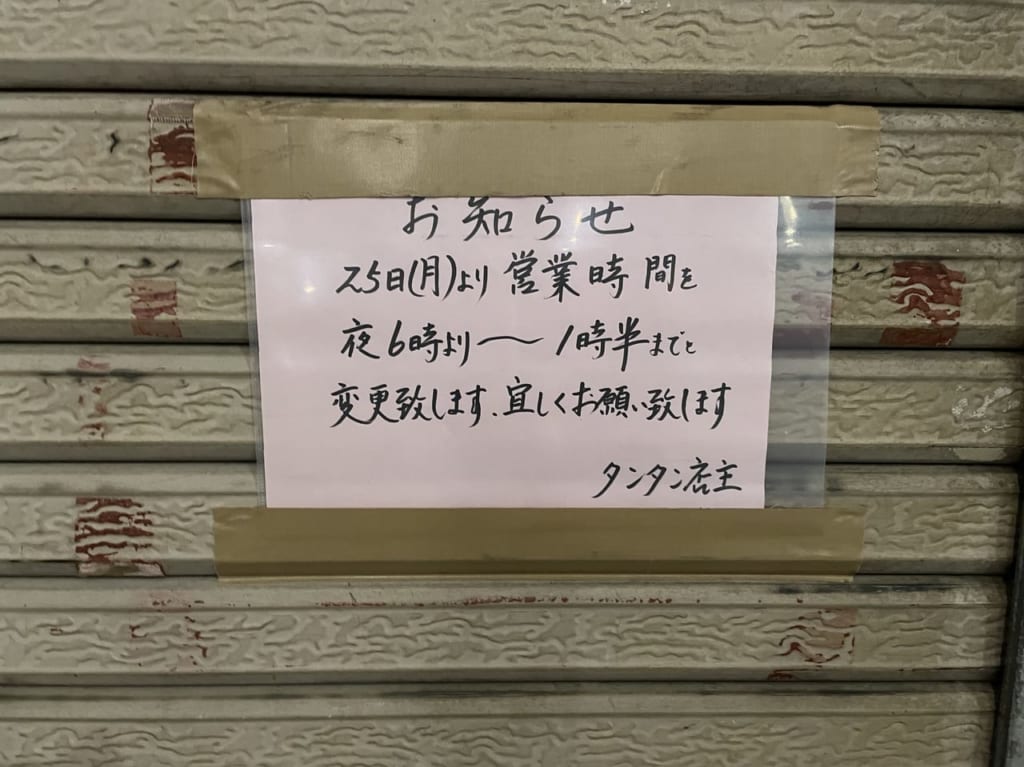 お知らせ
25日(月)より営業時間を
夜6時より〜1時半までと
変更致します、宜しくお願い致します
タンタン店主